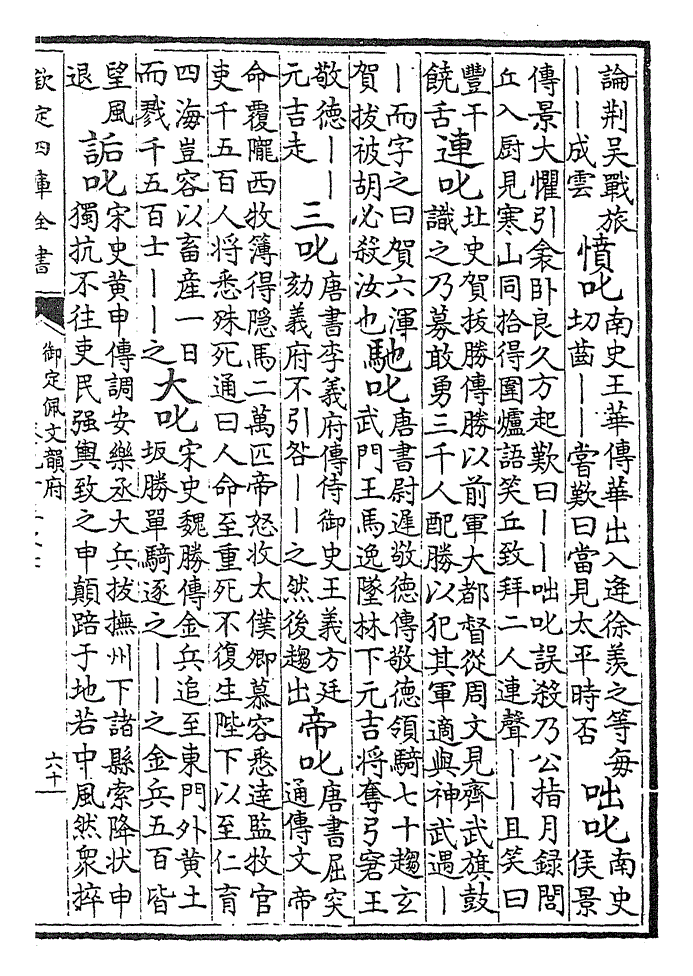 論荆吳戰旅
——成雲
憤叱
南史王華傳華出入逄徐羨之等每
切齒——嘗歎曰當見太平時否
咄叱
南史
侯景
傳景大懼引衾卧良久方起歎曰——咄叱誤殺乃公指月録閭
丘入厨見寒山同拾得圍爐語笑丘致拜二人連聲——且笑曰
豐干
饒舌
連叱
北史賀拔勝傳勝以前軍大都督從周文見齊武旗鼓
識之乃募敢勇三千人配勝以犯其軍適與神武遇—
—而字之曰賀六渾
賀拔被胡必殺汝也
馳叱
唐書尉遲敬德傳敬德領騎七十趨玄
武門王馬逸墜林下元吉將奪弓窘王
敬德——
元吉走
三叱
唐書李義府傳侍御史王義方廷
劾義府不引咎——之然後趨出
帝叱
唐書屈突
通傳文帝
命覆隴西牧簿得隱馬二萬匹帝怒收太僕卿慕容悉達監牧官
吏千五百人將悉殊死通曰人命至重死不復生陛下以至仁育
四海豈容以畜産一日
而戮千五百士——之
大叱
宋史魏勝傳金兵追至東門外黄土
坂勝單騎逐之——之金兵五百皆
望風
退
詬叱
宋史黄申傳調安樂丞大兵拔撫州下諸縣索降状申
獨抗不往吏民强輿致之申顛踣于地若中風然衆捽
欽定四庫全書
御定佩文韻府
六十